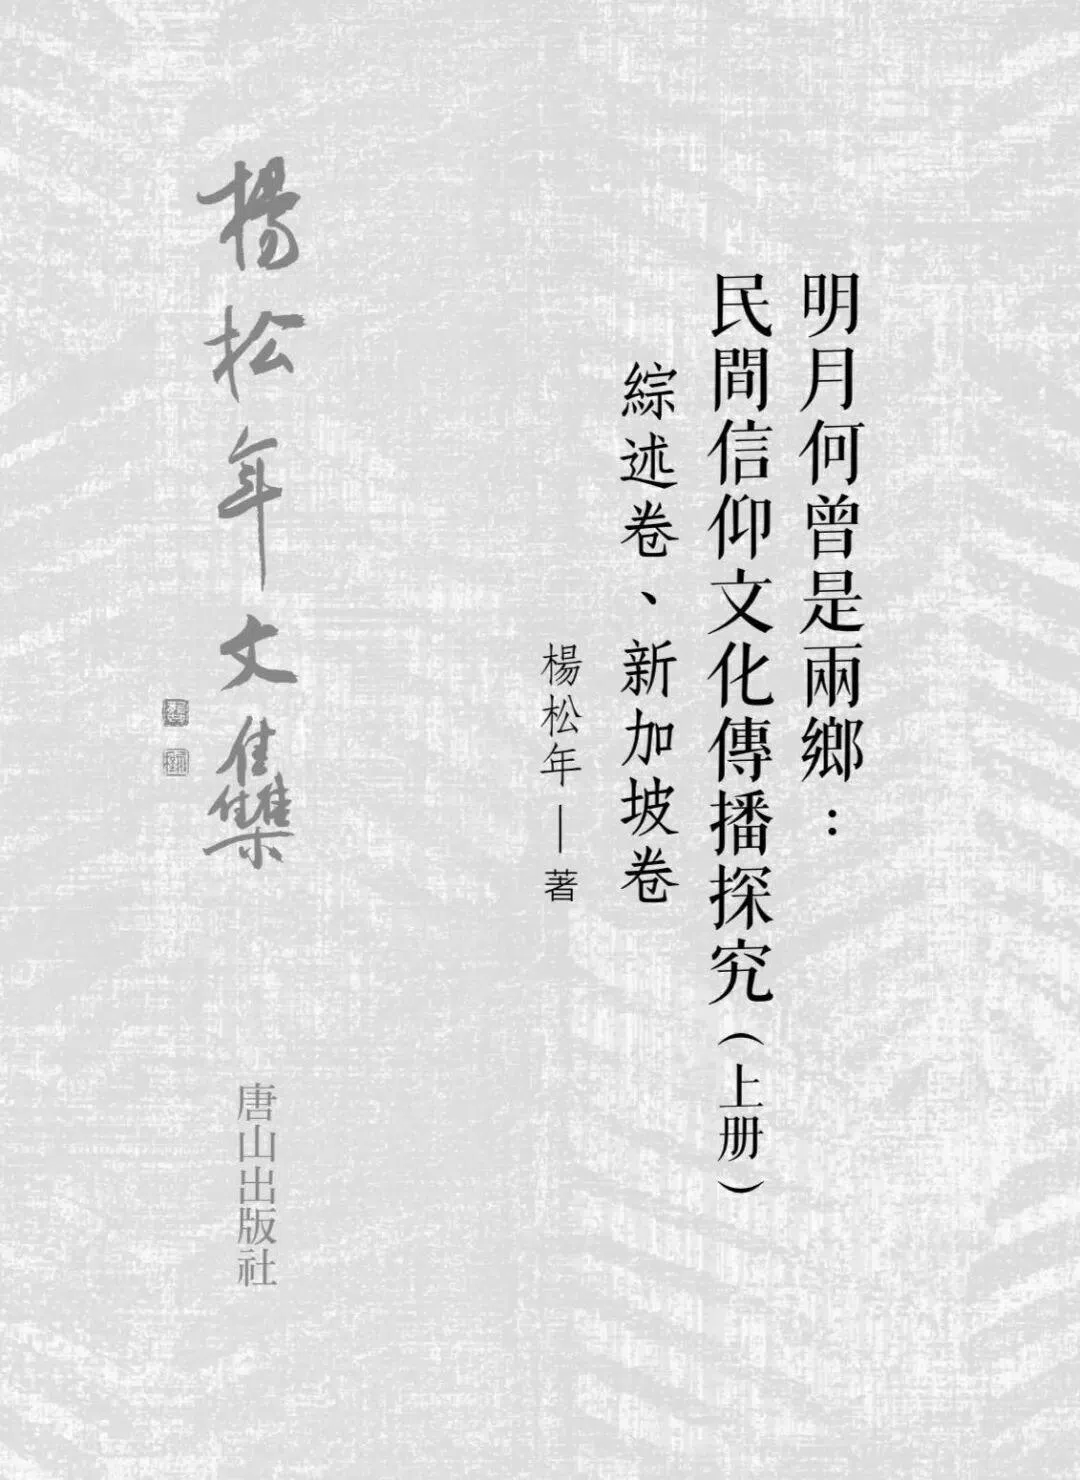 明月何曾是兩鄉：
民間信仰文化傳播探究（上册）
綜述卷、新加坡卷
楊松年—著
楊松年文集
唐山出版社